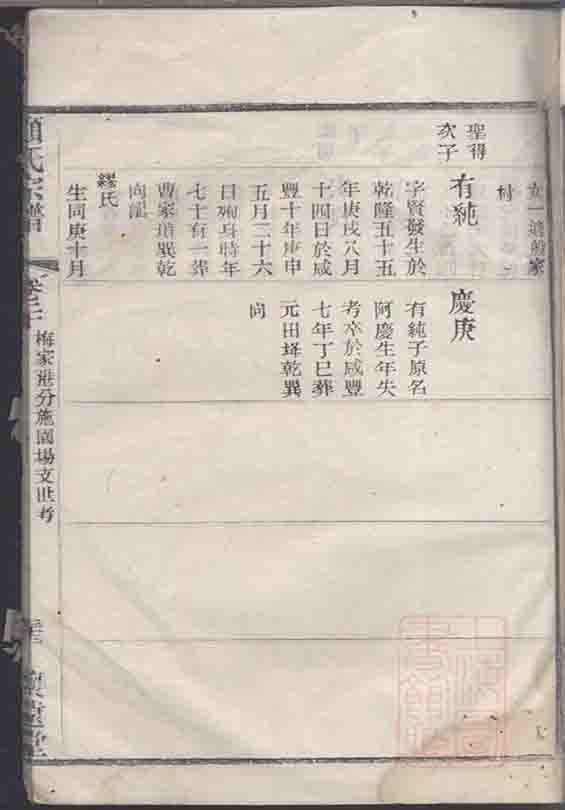 女一適前家
村
聖得
次子
有純
字賢發生於
乾隆五十五
年庚戌八月
十四日於咸
豐十年庚申
五月二十六
日殉身時年
七十有一葬
曹家道巽乾
向龍
繆氏
生同庚十月
慶庚
有純子原名
阿慶生年失
考卒於咸豐
七年丁巳葬
元田垾乾巽
向
顧氏宗譜
梅家港分施園場文世考